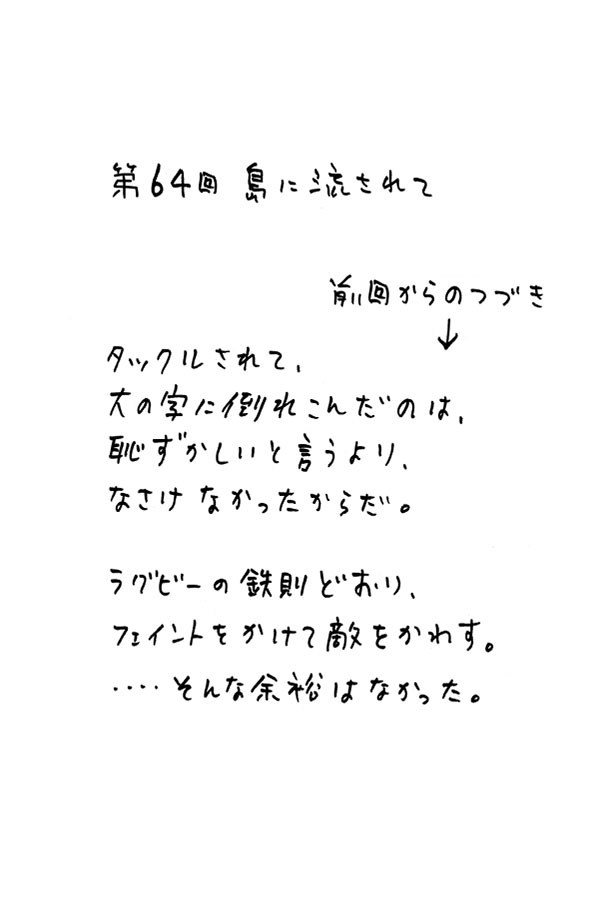 第64回 島に流されて
前回からのつづき
↓
タックルされて、
大の字に倒れこんだのは、
恥ずかしいと言うより、
なさけなかったからだ。
ラグビーの鉄則どおり、
フェイントをかけて敵をかわす。
‥‥そんな余裕はなかった。